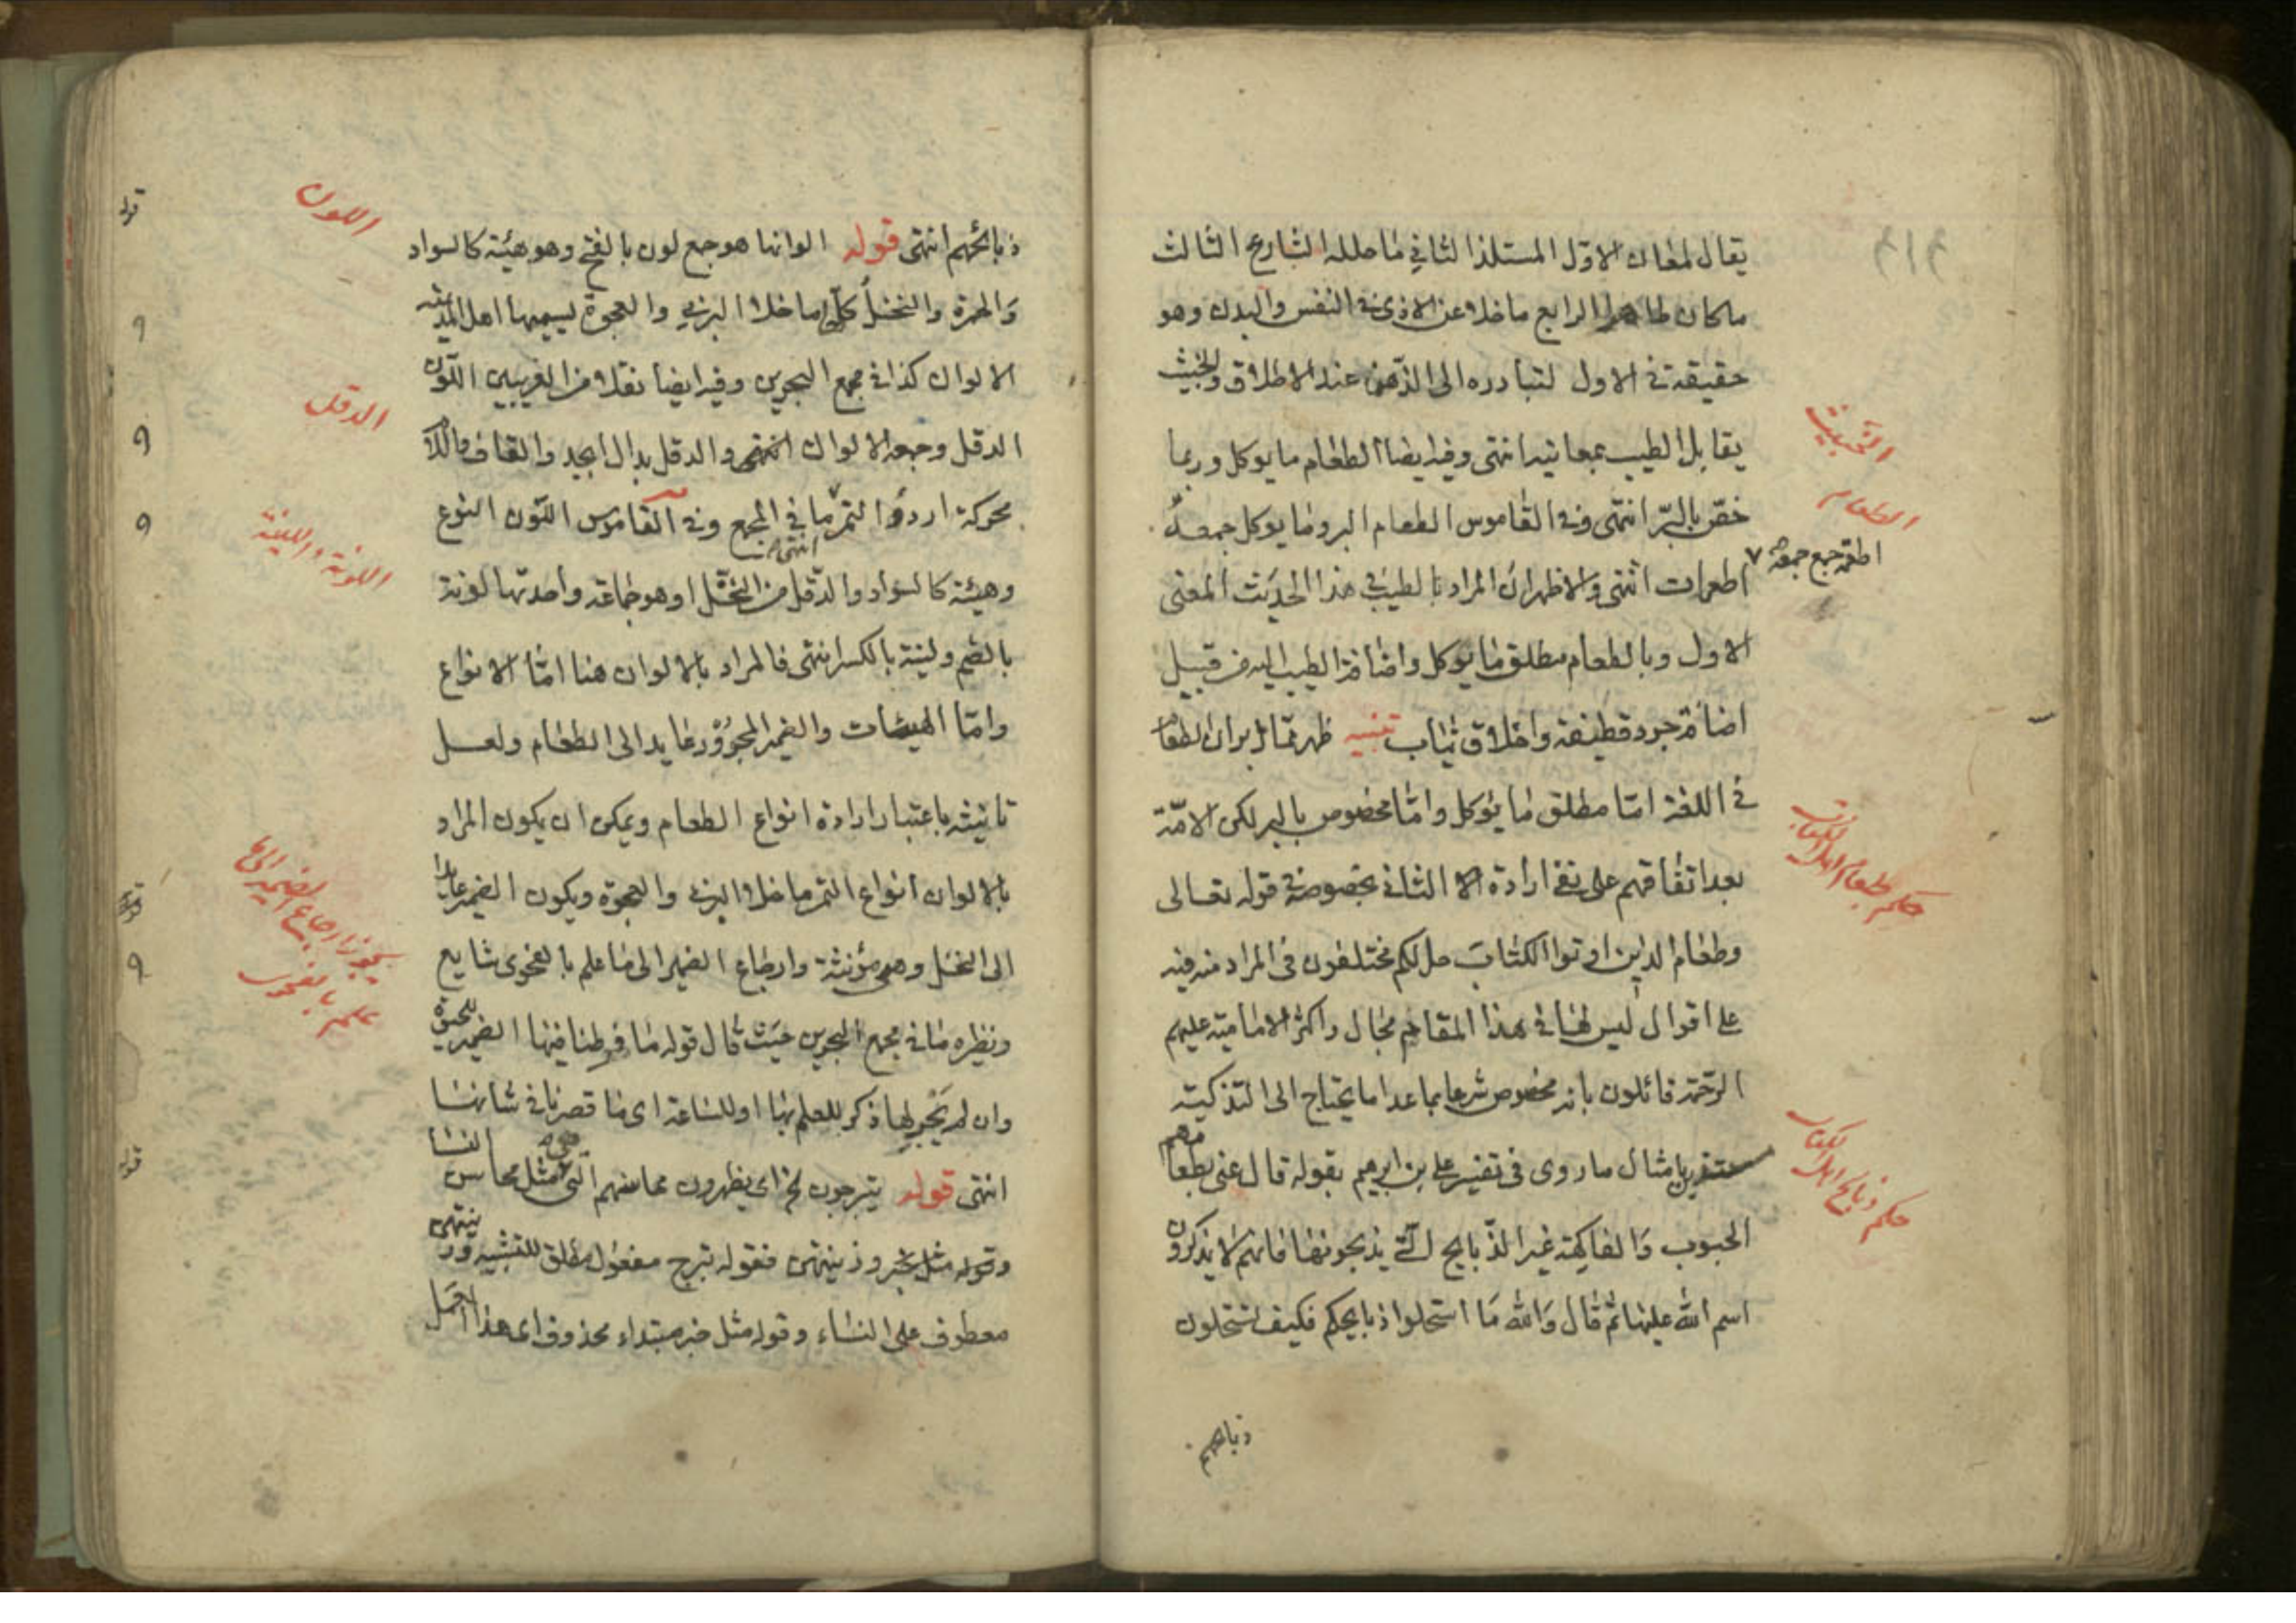 يقال لمعان الاول المستلذ الثاني ما حلله الشارع الثالث
ما كان طاهرا الرابع ما خلا عن الاذى في النفس والبدن وهو
حقيقة في الاول لتبادره الى الذهن عند الاطلاق والخبيث
يقابل الطيب بمعانيه انتهى وفيه ايضا الطعام ما يوكل وربما
خص بالبر انتهى وفي القاموس الطعام البر وما يوكل جمعه
اطعمة جمع جمعه
اطعمات انتهى والاظهر ان المراد بالطيب في هذا الحديث المعنى
الاول وبالطعام مطلق ما يوكل واضافة الطيب اليه من قبيل
اضافة جرد قطيفة واخلاق ثياب تنبيه ظهر مما مر ان الطعام
في اللغة اما مطلق ما يؤكل واما مخصوص بالبر لكن الامة
بعد اتفاقهم على نفي ارادة الثاني بخصوصه في قوله تعالى
وطعام الذين اوتوا الكتاب حل لكم مختلفون في المراد منه فيه
على اقوال ليس لها في هذا المقام مجال واكثر الامامية عليهم
الرحمة قائلون بانه مخصوص شرعا بما عدا ما يحتاج الى التذكية
بامثال ما روى في تفسير علي بن ابرهيم بقوله قال عنى بطعامهم
الحبوب والفاكهة غير الذبايح التي يذبحونها فانهم لا يذكرون
اسم الله عليها ثم قال والله ما استحلوا ذبايحكم فكيف تستحلون
ذبايحهم
الخبيث
الطعام
حكم طعام اهل الكتاب
حكم ذبايح اهل الكتاب
ذبائحهم انتهى قوله الوانها هو جمع لون بالفتح وهو هيئة كالسواد
والحمرة والنخل كله ما خلا البرني والعجوة يسميها اهل المدينة
الالوان كذا في مجمع البحرين وفيه ايضا نقلا من الغريبين اللون
الدقل وجمعه الالوان انتهى والدقل بدال ابجد والقاف واللام
محركة اردؤ التمر ما في المجمع انتهى وفي القاموس اللون النوع
وهيئة كالسواد والدقل من النخل او هو جماعة واحدتها لونة
بالضم ولينة بالكسر انتهى فالمراد بالالوان هنا اما الانواع
واما الهيئات والضمير المجرور عايد الى الطعام ولعل
تانيثه باعتبار ارادة انواع الطعام ويمكن ان يكون المراد
بالالوان انواع التمر ما خلا البرني والعجوة ويكون الضمير عايدا
الى النخل وهي مؤنثة وارجاع الضمير الى ما علم بالفحوى شايع
ونظيره ما في مجمع البحرين حيث قال قوله ما فرطنا فيها الضمير للحيوة
وان لم يجر لها ذكر للعلم بها او للساعة اى ما قصرنا في شانها
انتهى قوله يتبرجون اى يظهرون محاسنهم التي هي مثل محاسن النساء
وقوله مثل خبروذ ينتهى فقوله تبرج مفعول مطلق للتشبيه
معطوف على النساء وقوله مثل خبر مبتداء محذوف اى هذا
اللون
الدقل
اللونة واللينة
يجوز ارجاع الضمير الى ما
علم بالفحوى